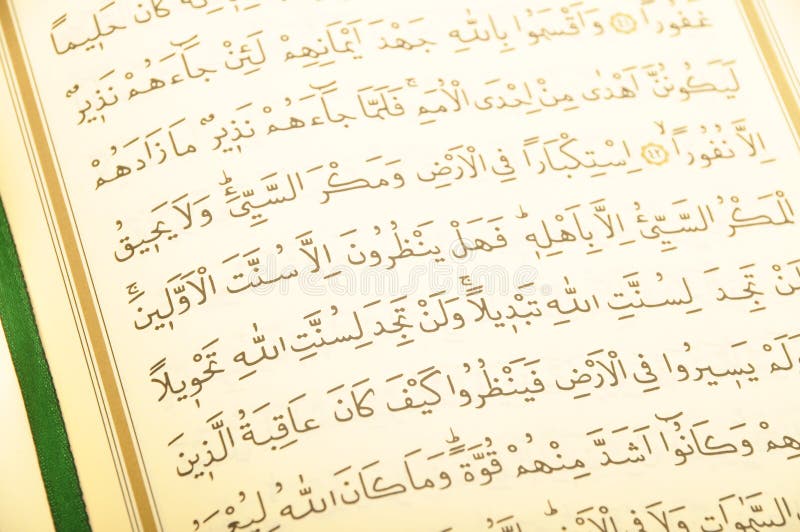 كَانَ حَل۪يماً
غَفُوراً ﴿٤١﴾ وَاَقْسَمُوا بِاللّٰهِ جَهْدَ اَيْمَانِهِمْ لَئِنْ جَٓاءَهُمْ نَذ۪يرٌ
لَيَكُونُنَّ اَهْدٰى مِنْ اِحْدَى الْاُمَمِۚ فَلَمَّا جَٓاءَهُمْ نَذ۪يرٌ مَا زَادَهُمْ
اِلَّا نُفُوراًۙ ﴿٤٢﴾ اِسْتِكْبَاراً فِي الْاَرْضِ وَمَكْرَ السَّيِّئِۜ وَلَا يَح۪يقُ
الْمَكْرُ السَّيِّئُ اِلَّا بِاَهْلِه۪ۜ فَهَلْ يَنْظُرُونَ اِلَّا سُنَّتَ الْاَوَّل۪ينَۚ
فَلَنْ تَجِدَ لِسُنَّتِ اللّٰهِ تَبْد۪يلاًۚ وَلَنْ تَجِدَ لِسُنَّتِ اللّٰهِ تَحْو۪يلاً
اَوَلَمْ يَس۪يرُوا فِي الْاَرْضِ فَيَنْظُرُوا كَيْفَ كَانَ عَاقِبَةُ الَّذ۪ينَ
وَكَانُٓوا اَشَدَّ مِنْهُمْ قُوَّةًۜ وَمَا كَانَ اللّٰهُ
السَّمٰوَاتِ وَلَا فِي الْاَرْضِ
dreamstime